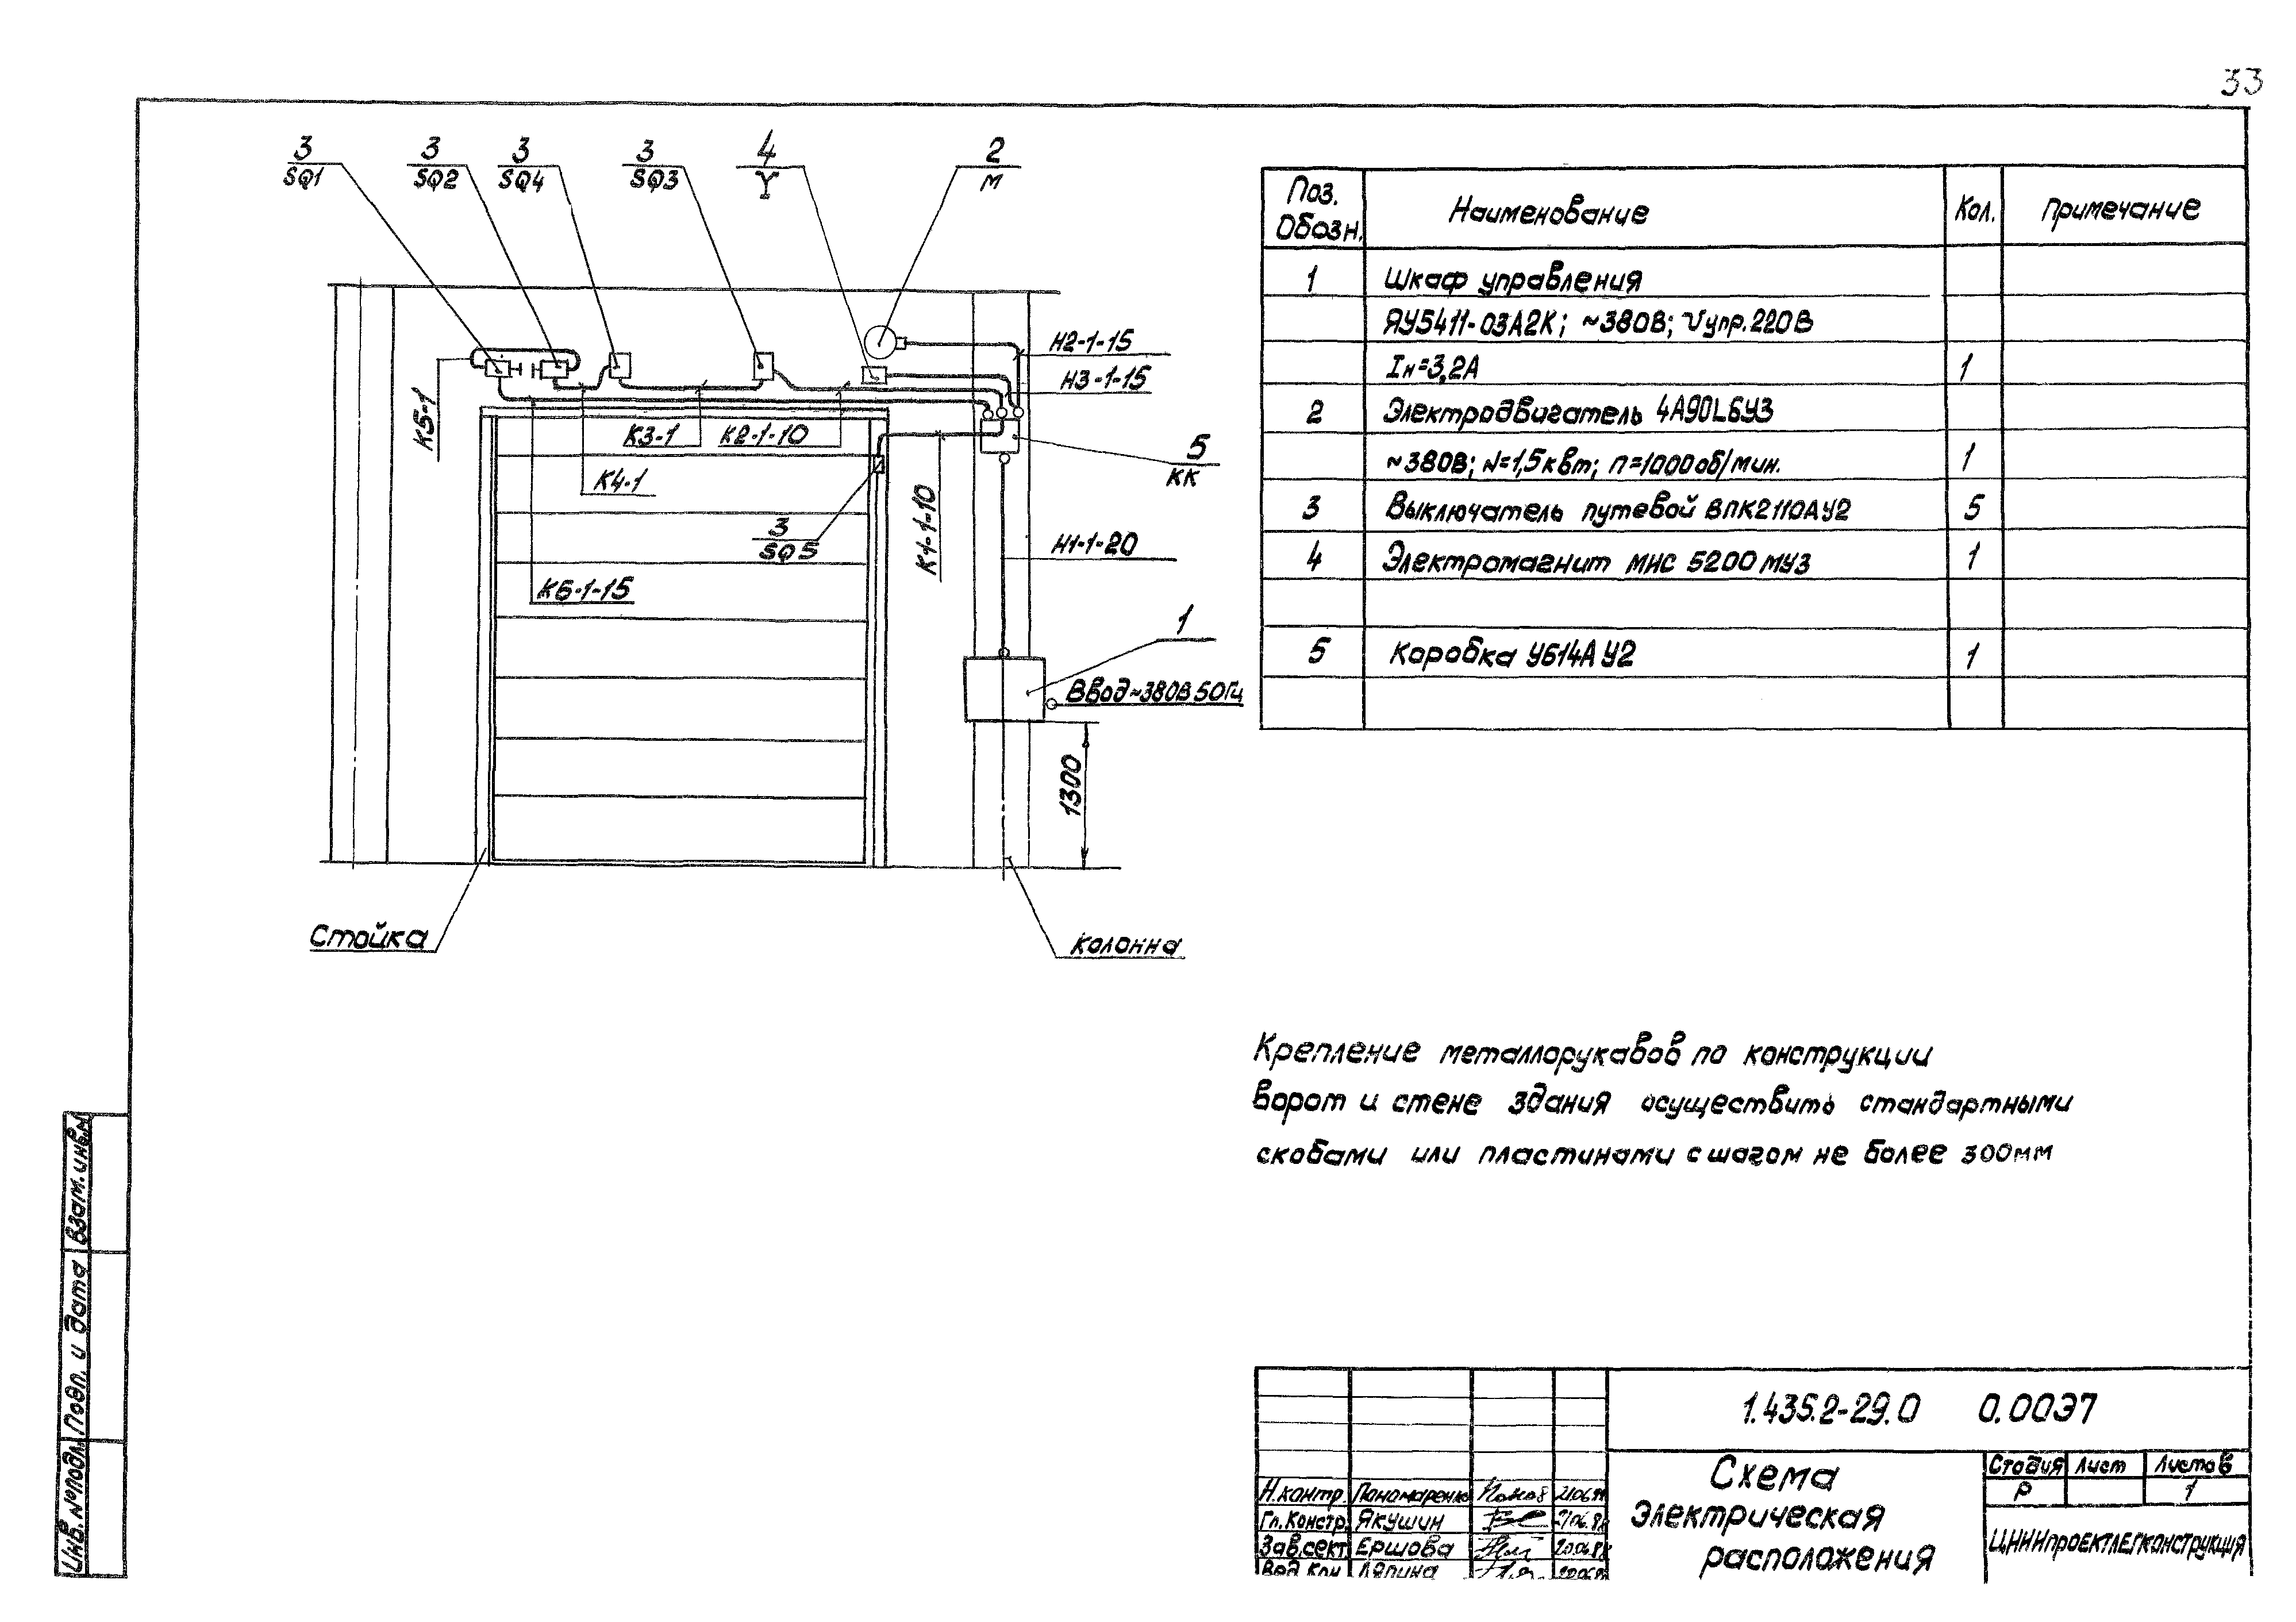 33
3
SQ1
3
SQ2
3
SQ4
3
SQ3
4
Y
2
М
Н2-1-15
Н3-1-15
К5-1
К3-1
К2-1-10
К4-1
5
КК
3
SQ5
К1-1-10
Н1-1-20
К6-1-15
1
Ввод ~380В 50Гц
1300
Стойка
Колонна
Поз. Обозн.
Наименование
Кол.
Примечание
1 Шкаф управления
ЯУ5411-03А2К; ~380В; Uупр.220В
Iн=3,2А 1
2 Электродвигатель 4А90L6У3
~380В; N=1,5квт; n=1000об/мин. 1
3 Выключатель путевой ВПК2110АУ2 5
4 Электромагнит МИС 5200 МУ3 1
5 Коробка У614А У2 1
Крепление металлорукавов по конструкции
ворот и стене здания осуществить стандартными
скобами или пластинами с шагом не более 300мм
Взам. инв.№
Подп. и дата
Инв. №подл.
1.435.2-29.0 0.00Э7
Схема
электрическая
расположения
Стадия Лист Листов
Р 1
ЦНИИпроектлегконструкция
Н.контр. Пономаренко
Гл.Констр. Якушин
Зав.сект Ершова
Вед. Кон Ляпина